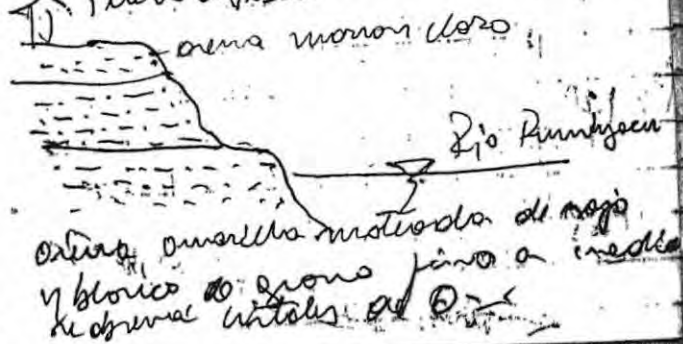 arena marron claro
Rio Rumiyacu
arena amarilla moteada de rojo
y blanco de grano fino a medio
se observa cristales de Q